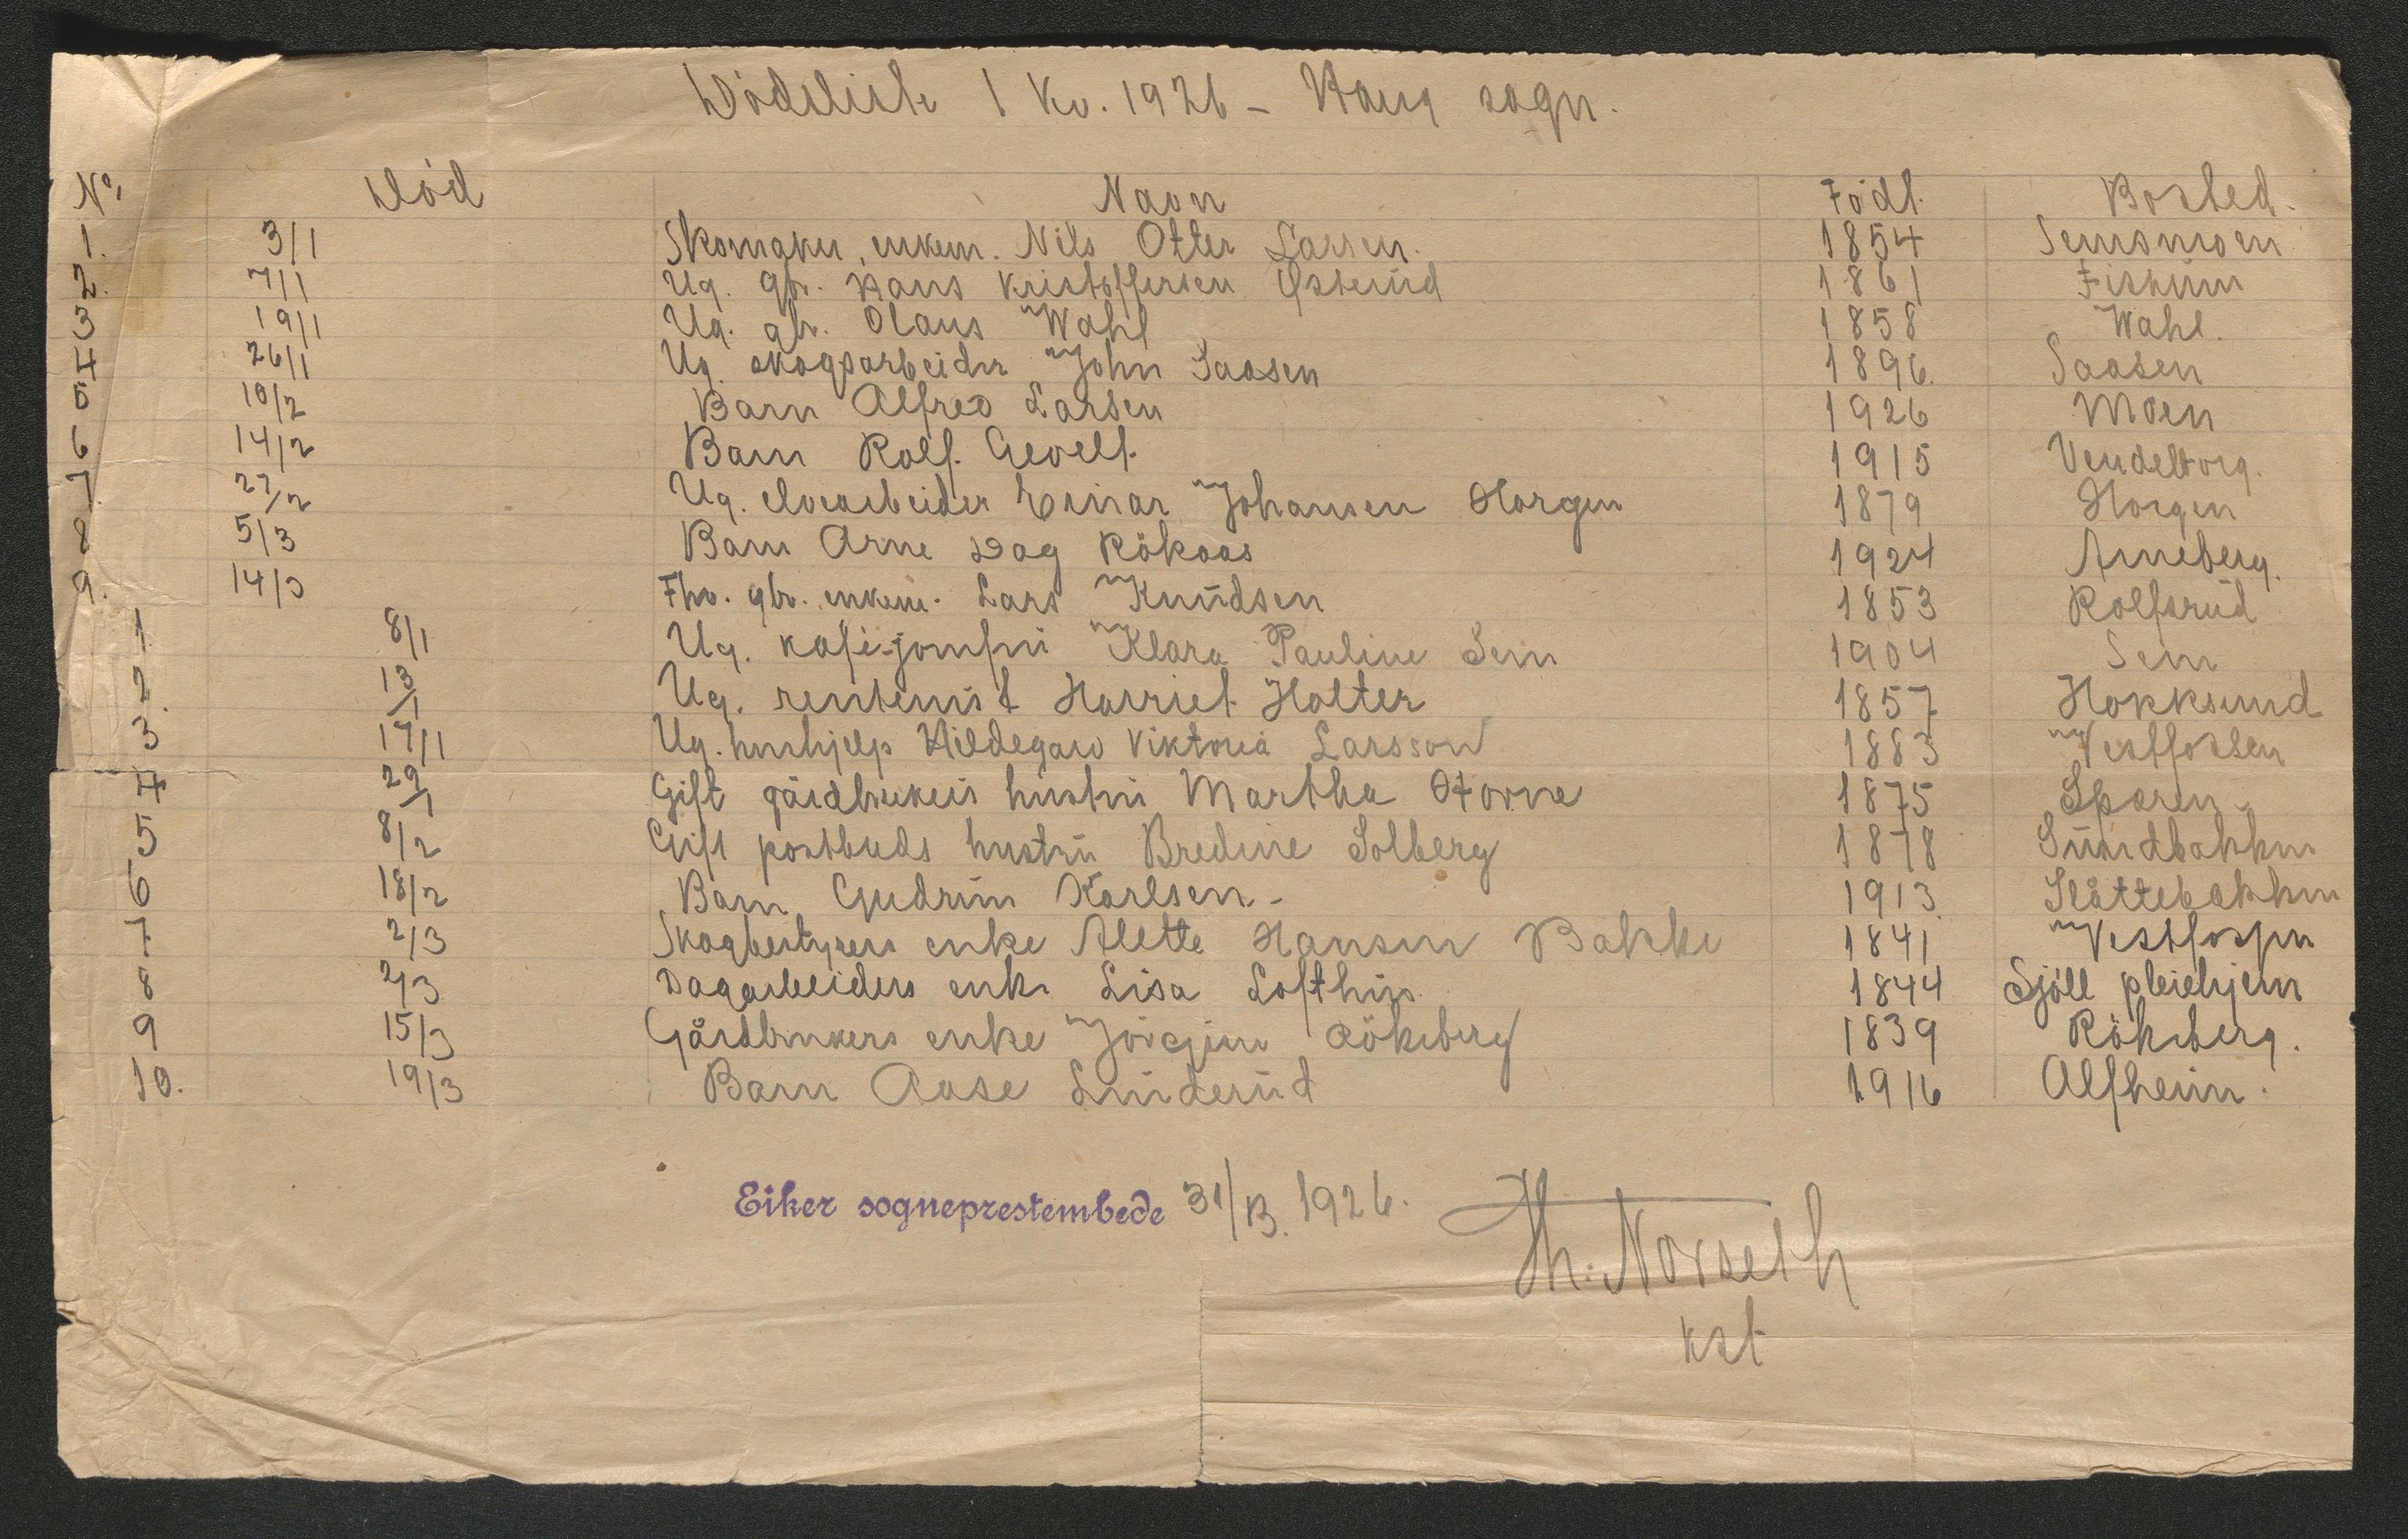 Dödsliste 1 Kv. 1926 - Haug sogn.
No. Död Navn Födt. Bosted.
1. 3/1 Skomaker, enkem. Nils Otter Larsen. 1854 Semsmoen
2. 7/1 Ug. gbr. Hans Kristoffersen Østerud 1861 Fiskum
3 19/1 Ug. gbr. Olaus Wahl 1858 Wahl.
4 26/1 Ug. skogsarbeider John Saasen 1896. Saasen
5 10/2 Barn Alfred Larsen 1926 Moen
6 14/2 Barn Rolf 1915 Vendelborg.
7. 27/2 Ug. elvearbeider Einar Johansen Horgen 1879 Horgen
8 5/3 Barn Arne Dag Rökaas 1924 Arneberg.
9. 14/3 Fhv. gbr. enkem. Lars Knudsen 1853 Rolfsrud
1. 8/1 Ug. kafé-jomfru Klara Pauline Sem 1904 Sem
2. 13/1 Ug. rentenist Harriet Holter 1857 Hokksund
3 17/1 Ug. hushjelp Hildegard Viktoria Larsson 1883 Vestfossen
4 29/1 Gift gårdbrukers hustru Martha 1875 Sparen
5 8/2 Gift postbuds hustru Bredine Solberg 1878 Sundbakken
6 18/2 Barn Gudrun Karlsen - 1913. Slåttebakken
7 2/3 Skogbestyrers enke Alette Hansen Bakke 1841 Vestfossen
8 2/3 Dagarbeiders enke Lisa Lofthus 1844 Sjöll pleiehjem
9 15/3 Gårdbrukers enke Jörgine Rökeberg 1839 Rökeberg.
10. 19/3 Barn Aase Linderud 1916 Alfheim.
Eiker sogneprestembede 31/3. 1926.
Th. Norseth
kst